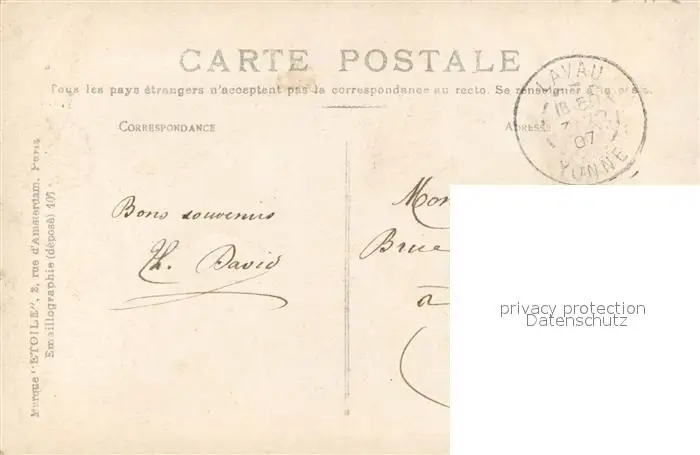 CARTE POSTALE
Tous les pays étrangers n'acceptent pas la correspondance au recto. Se renseigner
CORRESPONDANCE
ADRESSE
LAVAU
07
YONNE
Bons souvenirs
Th. David
Mon
Brue
à
privacy protection
Datenschutz
Marque "ETOILE", 2, rue d'Amsterdam, Paris
Emaillographie (déposé) 107